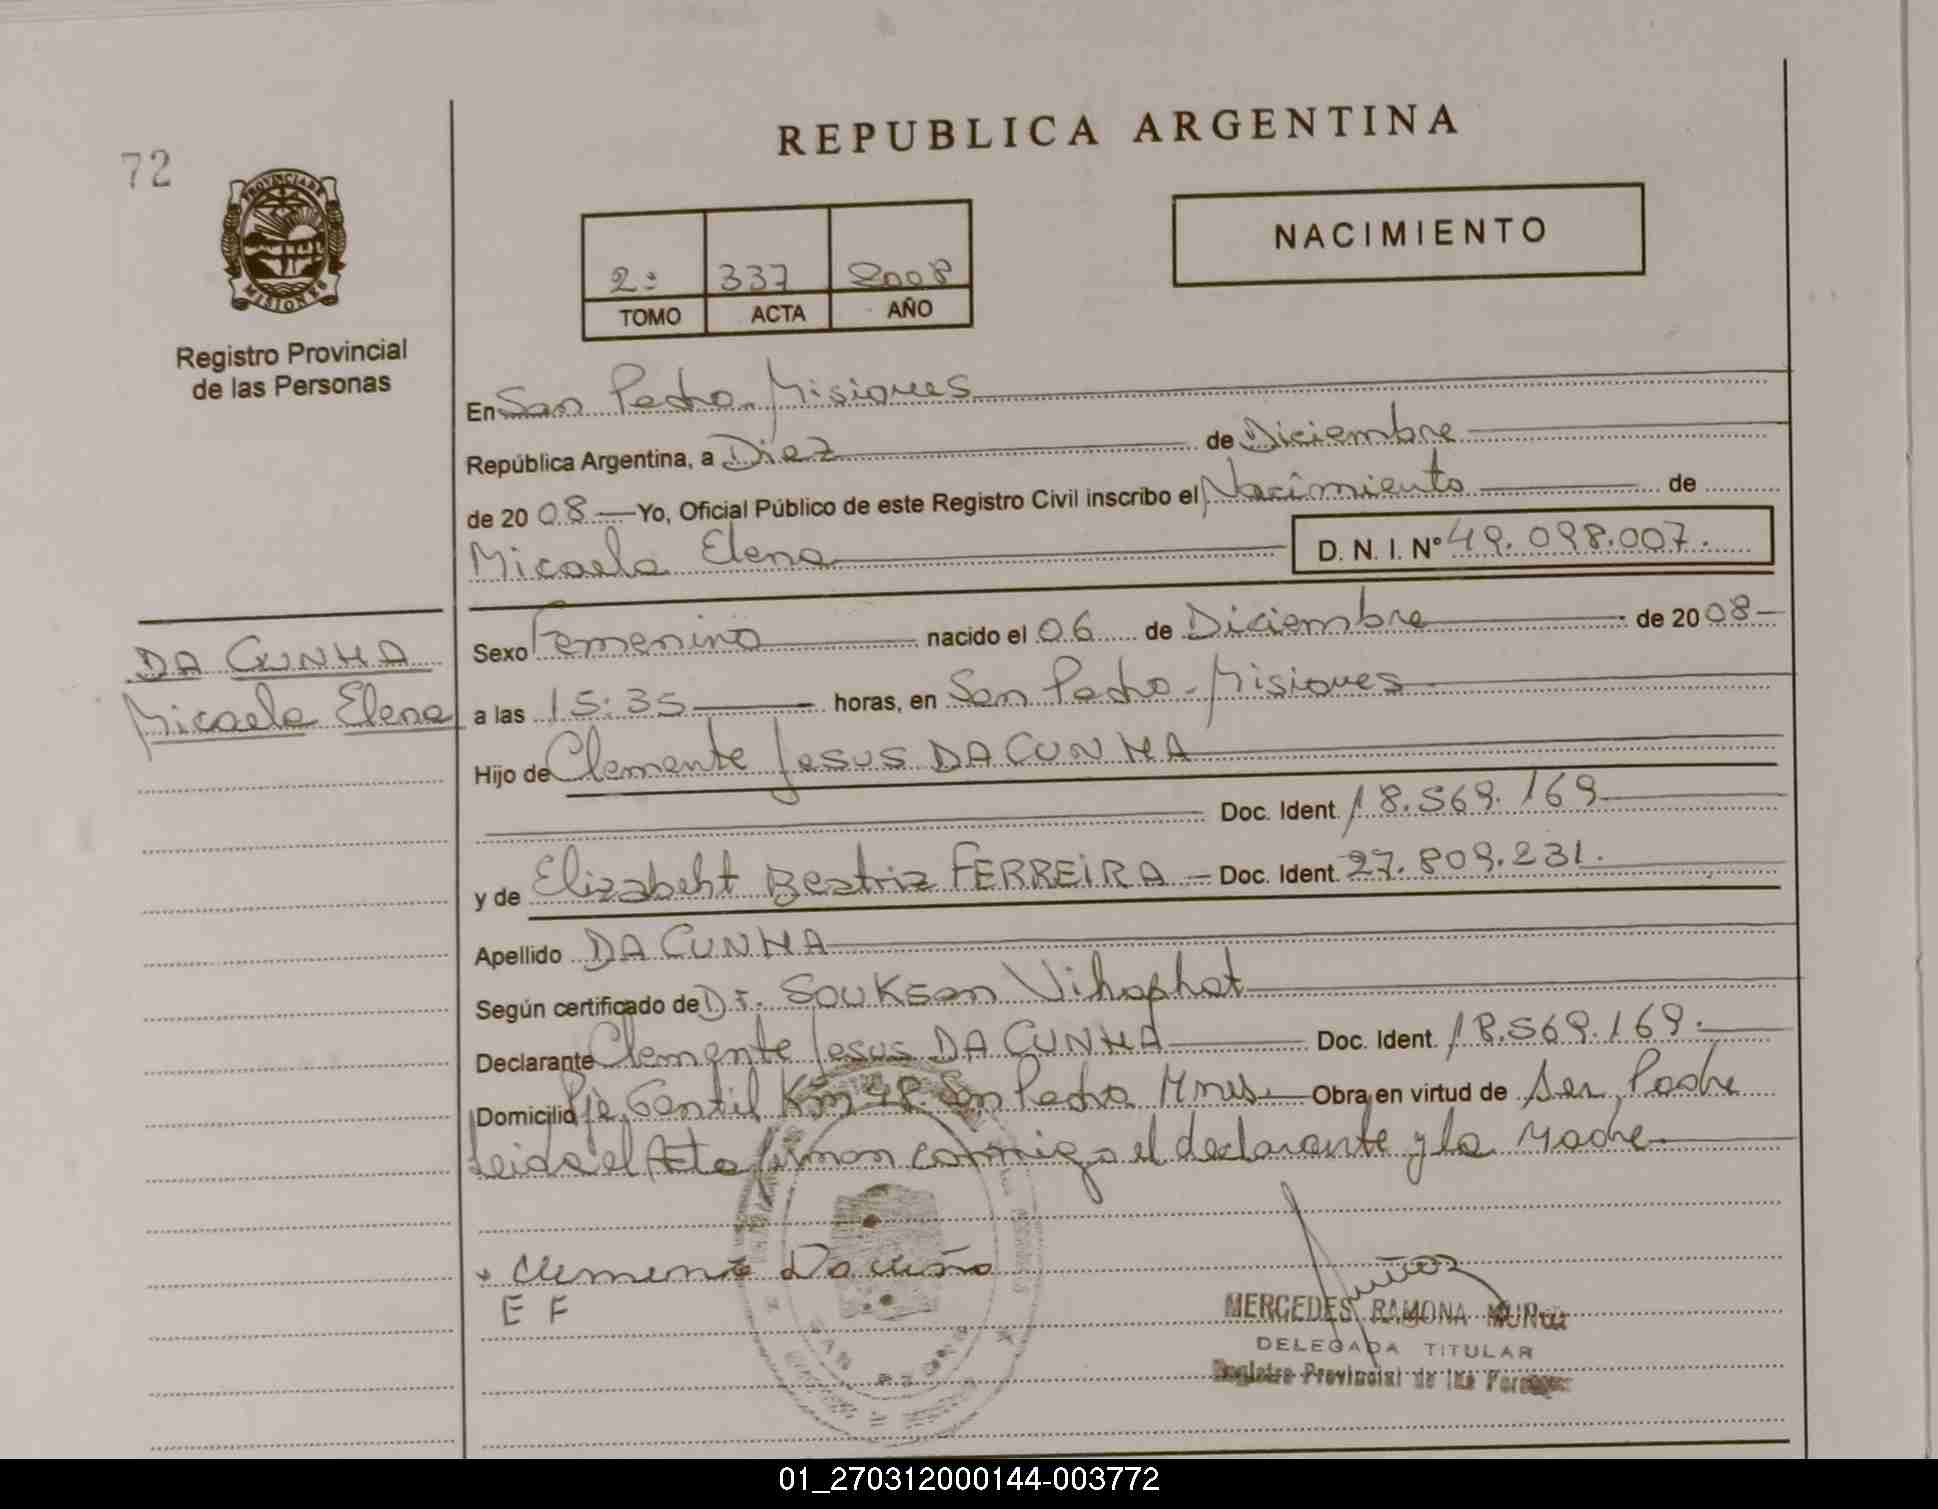 72
REPUBLICA ARGENTINA
PROVINCIA DE
MISIONES
Registro Provincial
de las Personas
2º 337 2008
TOMO ACTA AÑO
NACIMIENTO
En San Pedro - Misiones
República Argentina, a Diez de Diciembre
de 2008 Yo, Oficial Público de este Registro Civil inscribo el Nacimiento de
Micaela Elena D. N. I. Nº 49.098.007.
DA CUNHA
Micaela Elena
Sexo Femenino nacido el 06 de Diciembre de 2008
a las 15:35 horas, en San Pedro - Misiones
Hijo de Clemente Jesus DA CUNHA
Doc. Ident. 18.569.169
y de Elizabeht Beatriz FERREIRA Doc. Ident. 27.809.231.
Apellido DA CUNHA
Según certificado de Dr. Souksan Vihaphat
Declarante Clemente Jesus DA CUNHA Doc. Ident. 18.569.169.
Domicilio Pje Gentil Km 48 San Pedro Mnes. Obra en virtud de Ser Padre
Leida el Acta firman conmigo el declarante y la Madre
Clemente Dacuña
E F
Muñoz
MERCEDES RAMONA MUÑOZ
DELEGADA TITULAR
Registro Provincial de las Personas
SAN PEDRO
01_270312000144-003772